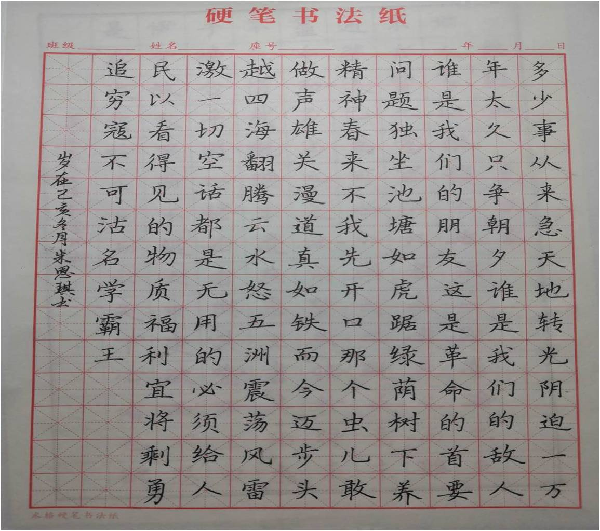 硬笔书法纸
班级 姓名 座号 年 月 日
多少事从来急天地转光阴迫一万
年太久只争朝夕谁是我们的敌人
谁是我们的朋友这是革命的首要
问题独坐池塘如虎踞绿荫树下养
精神春来不我先开口那个虫儿敢
做声雄关漫道真如铁而今迈步头
越四海翻腾云水怒五洲震荡风雷
激一切空话都是无用的必须给人
民以看得见的物质福利宜将剩勇
追穷寇不可沽名学霸王
岁在己亥冬月朱思琪书
硬笔书法纸